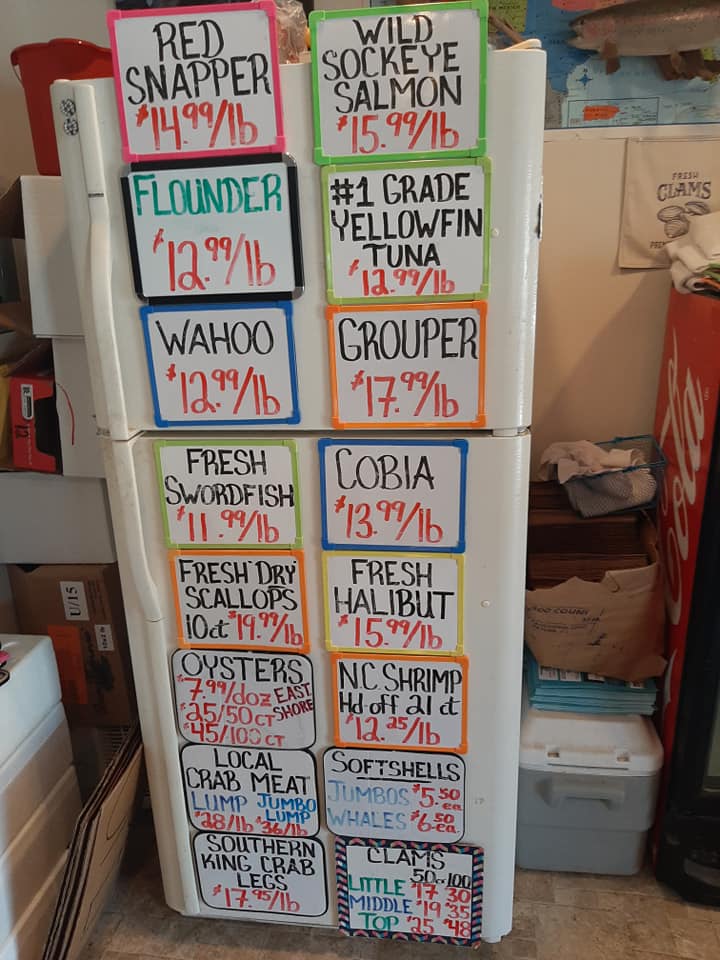 RED
SNAPPER
$14.99/lb
WILD
SOCKEYE
SALMON
$15.99/lb
FLOUNDER
$12.99/lb
#1 GRADE
YELLOWFIN
TUNA
$12.99/lb
WAHOO
$12.99/lb
GROUPER
$17.99/lb
FRESH
SWORDFISH
$11.99/lb
COBIA
$13.99/lb
FRESH DRY
SCALLOPS
10ct $19.99/lb
FRESH
HALIBUT
$15.99/lb
OYSTERS
$7.99/doz EAST
$25/50 CT SHORE
$45/100 CT
N.C. SHRIMP
Hd off 21 ct
$12.25/lb
LOCAL
CRAB MEAT
LUMP JUMBO
LUMP
$28/lb $36/lb
SOFTSHELLS
JUMBOS $5.50 ea.
WHALES $6.50 ea.
SOUTHERN
KING CRAB
LEGS
$17.95/lb
CLAMS
50 or 100
LITTLE $17 30
MIDDLE $19 $35
TOP $25 $48
FRESH
CLAMS
U/15
12
Coca-Cola